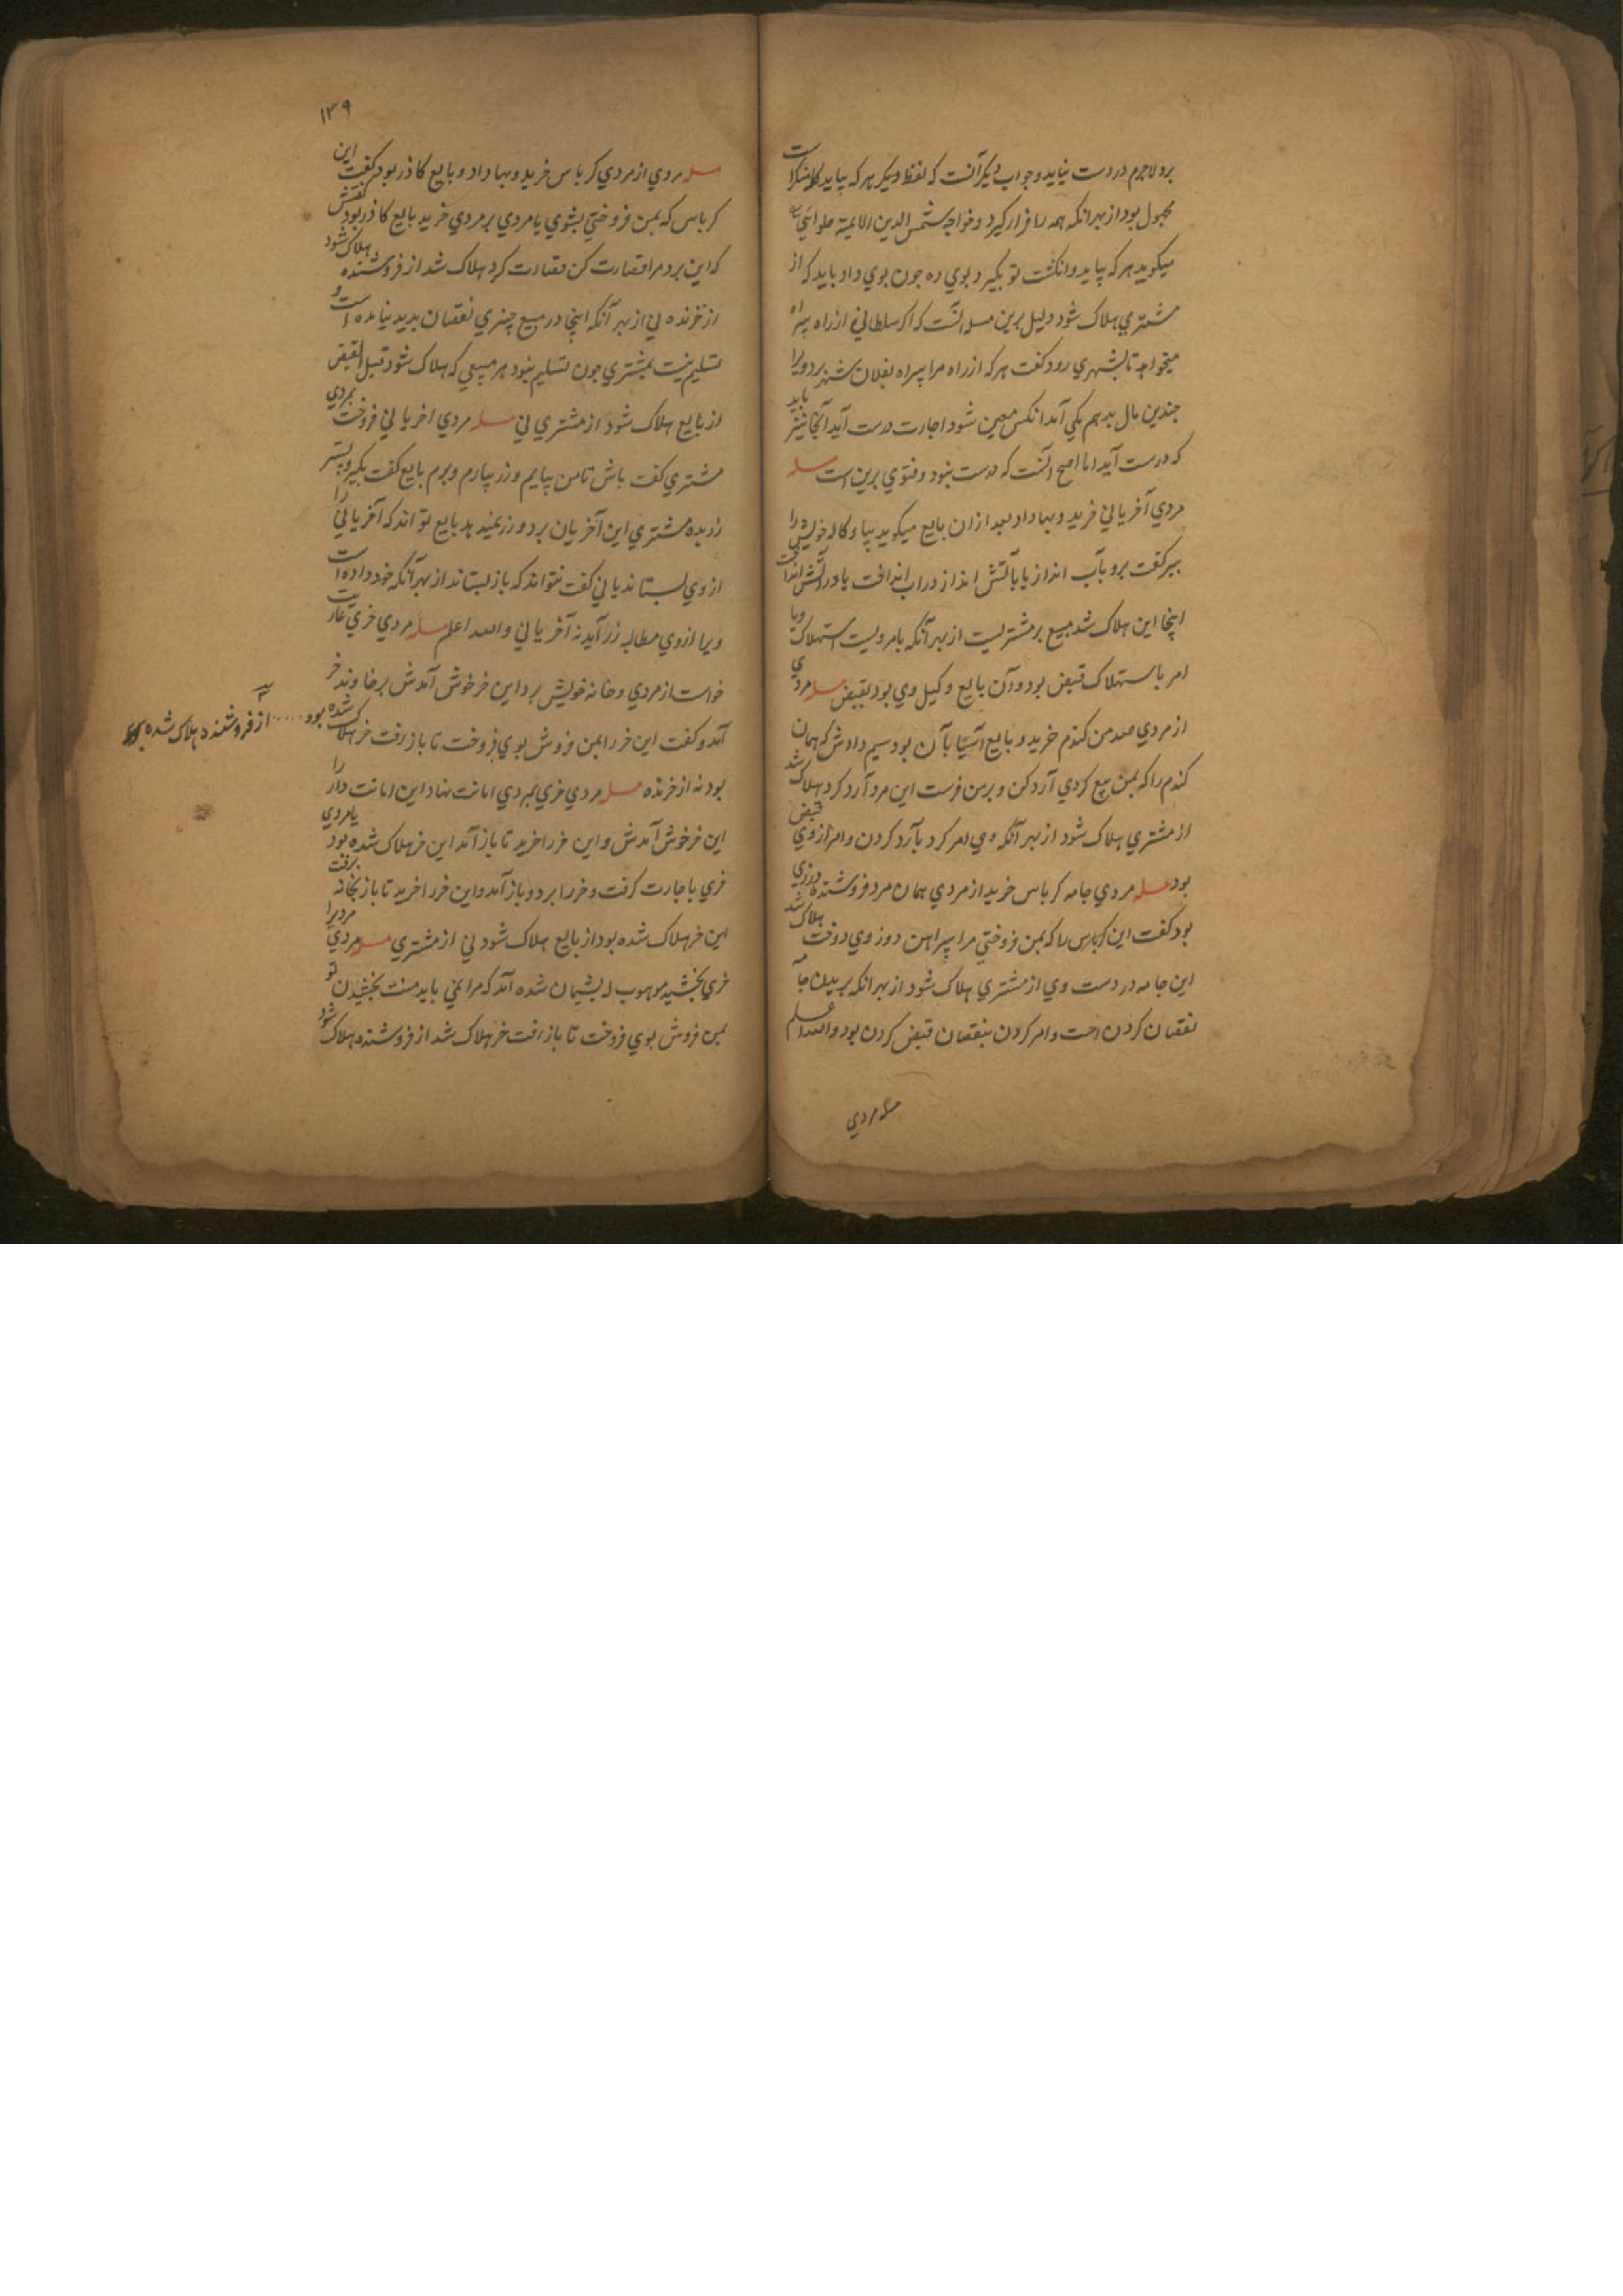 برد لاجرم در دست نیاید و جواب دیکر آنست که لفظ دیکر هر که بیاید کالا منکر است
مجهول بود از بهر انکه همه را فرار کیرد و خواجه شمس الدین الایمة حلوانی
میکوید هر که بیاید و انکشت تو بکیرد بوی ده جون بوی داد باید که از
مشتری هلاک شود دلیل برین مسله انست که اکر سلطانی از راه بیراه
میخواهد تا بشهری رود کفت هر که از راه مرا بیراه بفلان شهر برد ویرا
جندین مال بدهم یکی آمد انکس معین شود اجارت درست آید آنجا نیز باید
که درست آید اما اصح آنست که درست نبود و فتوی برین است مسله
مردی آخریانی خرید و بها داد بعد ازان بایع میکوید بیا و کاله خویش را
ببر کفت برو بآب انداز یا بآتش انداز در اب انداخت یا در آتش انداخت
اینجا این هلاک شد مبیع بر مشتریست از بهر آنکه بامر ویست استهلاک ویا
امر باستهلاک قبض بود و آن بایع وکیل وی بود بقبض مسله مردی
از مردی صد من کندم خرید و بایع آسیابان بود سیم دادش که همان
کندم را که بمن بیع کردی آرد کن و بر من فرست این مرد آرد کرد هلاک شد
از مشتری هلاک شود از بهر آنکه وی امر کرد بآرد کردن و امر از وی قبض
بود مسله مردی جامه کرباس خرید از مردی همان مرد فروشنده درزی
بود کفت این کرباس را که بمن فروختی مرا پیراهن دوز وی دوخت هلاک شد
این جامه در دست وی از مشتری هلاک شود از بهر انکه بریدن جامه
نقصان کردن است و امر کردن بنقصان قبض کردن بود والله اعلم
مسله مردی
١٣٩
مسله مردی از مردی کرباس خرید و بها داد و بایع کاذر بود کفت این
کرباس که بمن فروختی بشوی یا مردی بر مردی خرید بایع کاذر بود کفتش
که این برد مرا قصارت کن قصارت کرد هلاک شد از فروشنده هلاک شود
از خرنده نی از بهر آنکه اینجا در مبیع چیزی نقصان بدید نیامده است و
تسلیم نیست بمشتری جون تسلیم نبود هر مبیعی که هلاک شود قبل القبض
از بایع هلاک شود از مشتری نی مسله مردی اخریانی فروخت بمردی
مشتری کفت باش تا من بیایم و زر بیارم و برم بایع کفت بکیر و ببر
زر بده مشتری این آخریان برد و زر نمیدهد بایع تواند که آخریانی را
از وی بستاند یا نی کفت نتواند که باز بستاند از بهر آنکه خود داده است
ویرا از وی مطالبه زر آید نه آخریانی والله اعلم مسله مردی خری عاریت
خواست از مردی و خانه خویش برد این خر خوش آمدش بر خداوند خر
آمد و کفت این خر را بمن فروش بوی فروخت تا باز رفت خر هلاک شده
بود ..... از فروشنده هلاک شده
بود نه از خرنده مسله مردی خری بمردی امانت نهاد این امانت دار را
این خر خوش آمدش و این خر را خرید تا باز آمد این خر هلاک شده بود یا مردی
خری باجارت کرفت و خر را برد و باز آمد و این خر را خرید تا باز بخانه برفت
این خر هلاک شده بود از بایع هلاک شود نی از مشتری مسله مردی مردیرا
خری بخشید موهوب له پشیمان شده آمد که مرا نمی باید منت بخشیدن تو
بمن فروش بوی فروخت تا باز رفت خر هلاک شد از فروشنده هلاک شود